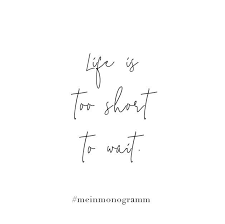 Life is
too short
to wait.
#meinmonogramm